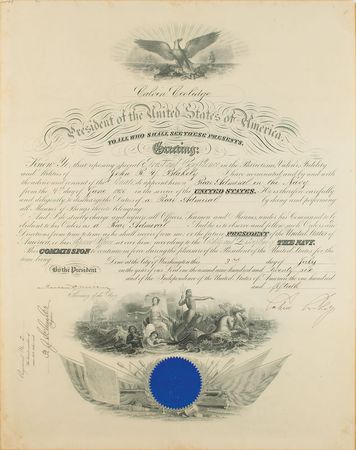 Calvin Coolidge
President of the United States of America,
TO ALL WHO SHALL SEE THESE PRESENTS,
Greeting:
Know Ye, that reposing special Trust and Confidence in the Patriotism, Valor, Fidelity
and Abilities of John R. Y. Blakely I have nominated and by and with
the advice and consent of the Senate do appoint him a Rear Admiral in the Navy
from the day of June 1926 in the service of the UNITED STATES. He is therefore carefully
and diligently to discharge the Duties of a Rear Admiral by doing and performing
all Manner of Things thereunto belonging.
And I do strictly charge and require all Officers, Seamen and Marines under his Command to be
obedient to his Orders as a Rear Admiral And he is to observe and follow such Orders and
Directions from time to time as he shall receive from me or the future PRESIDENT of the United States of
America or his Superior Officer set over him, according to the Rules and Discipline of THE NAVY.
This COMMISSION to continue in force during the pleasure of the President of the United States for the
time being.
Done at the City of Washington this day of July
in the year of our Lord one thousand nine hundred and Twenty six
and of the Independence of the United States of America the one hundred
and fiftieth
By the President
Secretary of the Navy
Calvin Coolidge